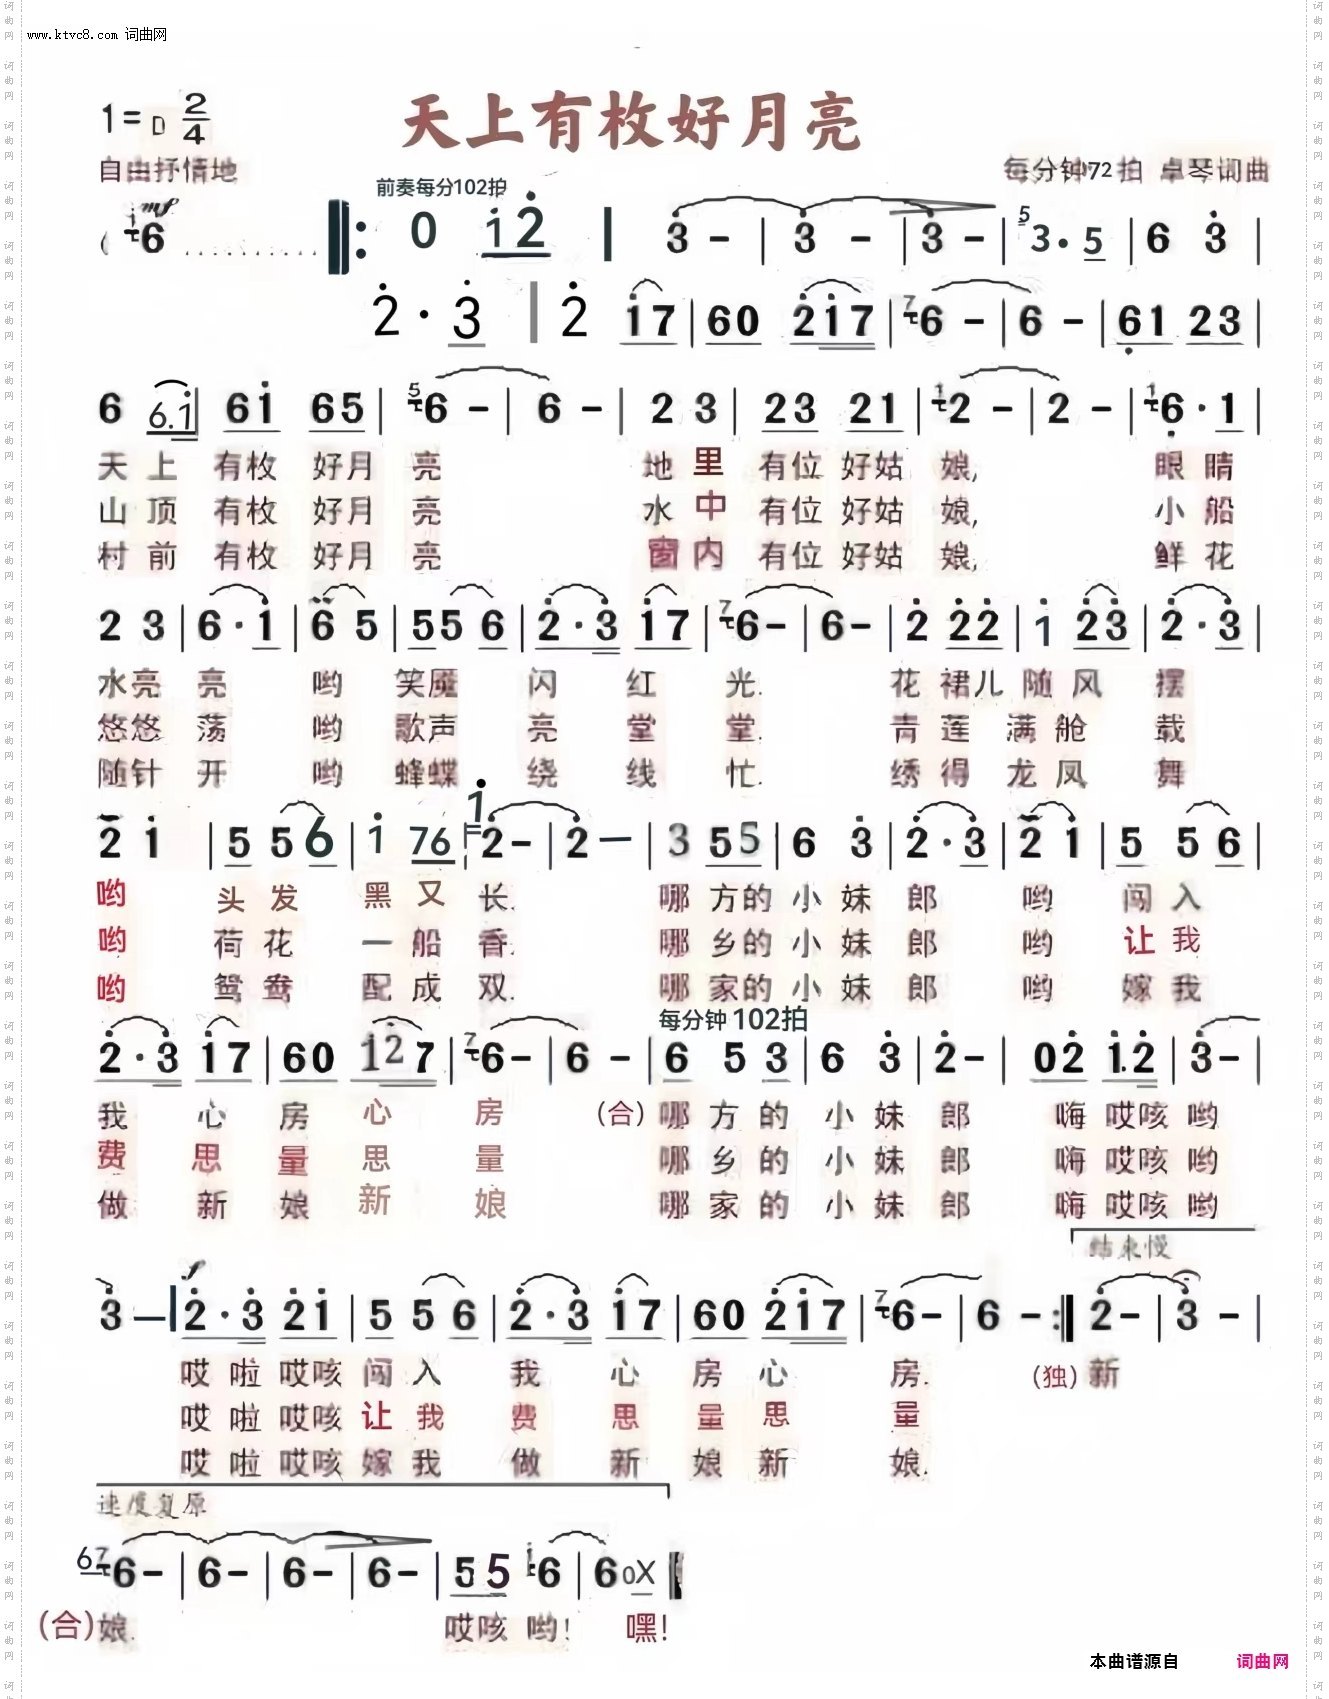 www.ktvc8.com 词曲网
天上有枚好月亮
1=D 2/4
自由抒情地
前奏每分102拍
每分钟72拍 卓琴词曲
mf
6 0 i 2 | 3 - | 3 - | 3 - | 3 · 5 | 6 3 |
2 · 3 | 2 i 7 | 6 0 2 i 7 | 6 - | 6 - | 6 1 2 3 |
6 6. i | 6 i 6 5 | 6 - | 6 - | 2 3 | 2 3 2 1 | 2 - | 2 - | 6 · 1 |
天上 有枚 好月 亮 地里 有位 好姑 娘, 眼睛
山顶 有枚 好月 亮 水中 有位 好姑 娘, 小船
村前 有枚 好月 亮 窗内 有位 好姑 娘, 鲜花
2 3 | 6 · i | 6 5 | 5 5 6 | 2 · 3 i 7 | 6 - | 6 - | 2 2 2 | i 2 3 | 2 · 3 |
水亮 亮 哟 笑魇 闪 红 光. 花 裙儿 随风 摆
悠悠 荡 哟 歌声 亮 堂 堂. 青莲 满舱 载
随针 开 哟 蜂蝶 绕 线 忙. 绣得 龙凤 舞
2 i | 5 5 6 | i 7 6 | 2 - | 2 - | 3 5 5 | 6 3 | 2 · 3 | 2 i | 5 5 6 |
哟 头发 黑又 长. 哪方的 小妹 郎 哟 闯入
哟 荷花 一船 香. 哪乡的 小妹 郎 哟 让我
哟 鸳鸯 配成 双. 哪家的 小妹 郎 哟 嫁我
每分钟 102拍
2 · 3 i 7 | 6 0 i 2 7 | 6 - | 6 - | 6 5 3 | 6 3 | 2 - | 0 2 i. 2 | 3 - |
我 心 房 心 房 (合) 哪方的 小妹 郎 嗨 哎咳 哟
费 思 量 思 量 哪乡的 小妹 郎 嗨 哎咳 哟
做 新 娘 新 娘 哪家的 小妹 郎 嗨 哎咳 哟
结束慢
f
3 — | 2 · 3 2 i | 5 5 6 | 2 · 3 i 7 | 6 0 2 i 7 | 6 - | 6 - :| 2 - | 3 - |
哎啦 哎咳 闯入 我 心 房 心 房. (独) 新
哎啦 哎咳 让我 费 思 量 思 量
哎啦 哎咳 嫁我 做 新 娘 新 娘.
速度复原
6 - | 6 - | 6 - | 6 - | 5 5 6 | 6 0 X
(合) 娘. 哎咳 哟! 嘿!
本曲谱源自 词曲网